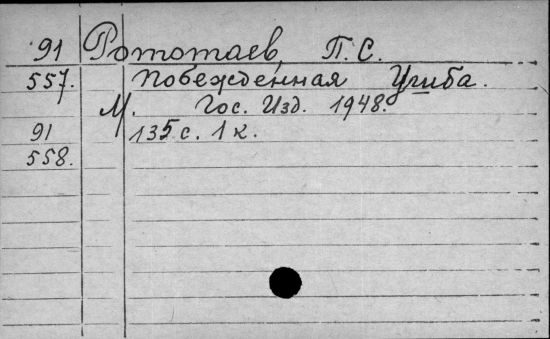 91 Рототаев, П. С.
557. Побежденная Ушба.
М. Гос. Изд. 1948.
91 135 с. 1 к.
558.